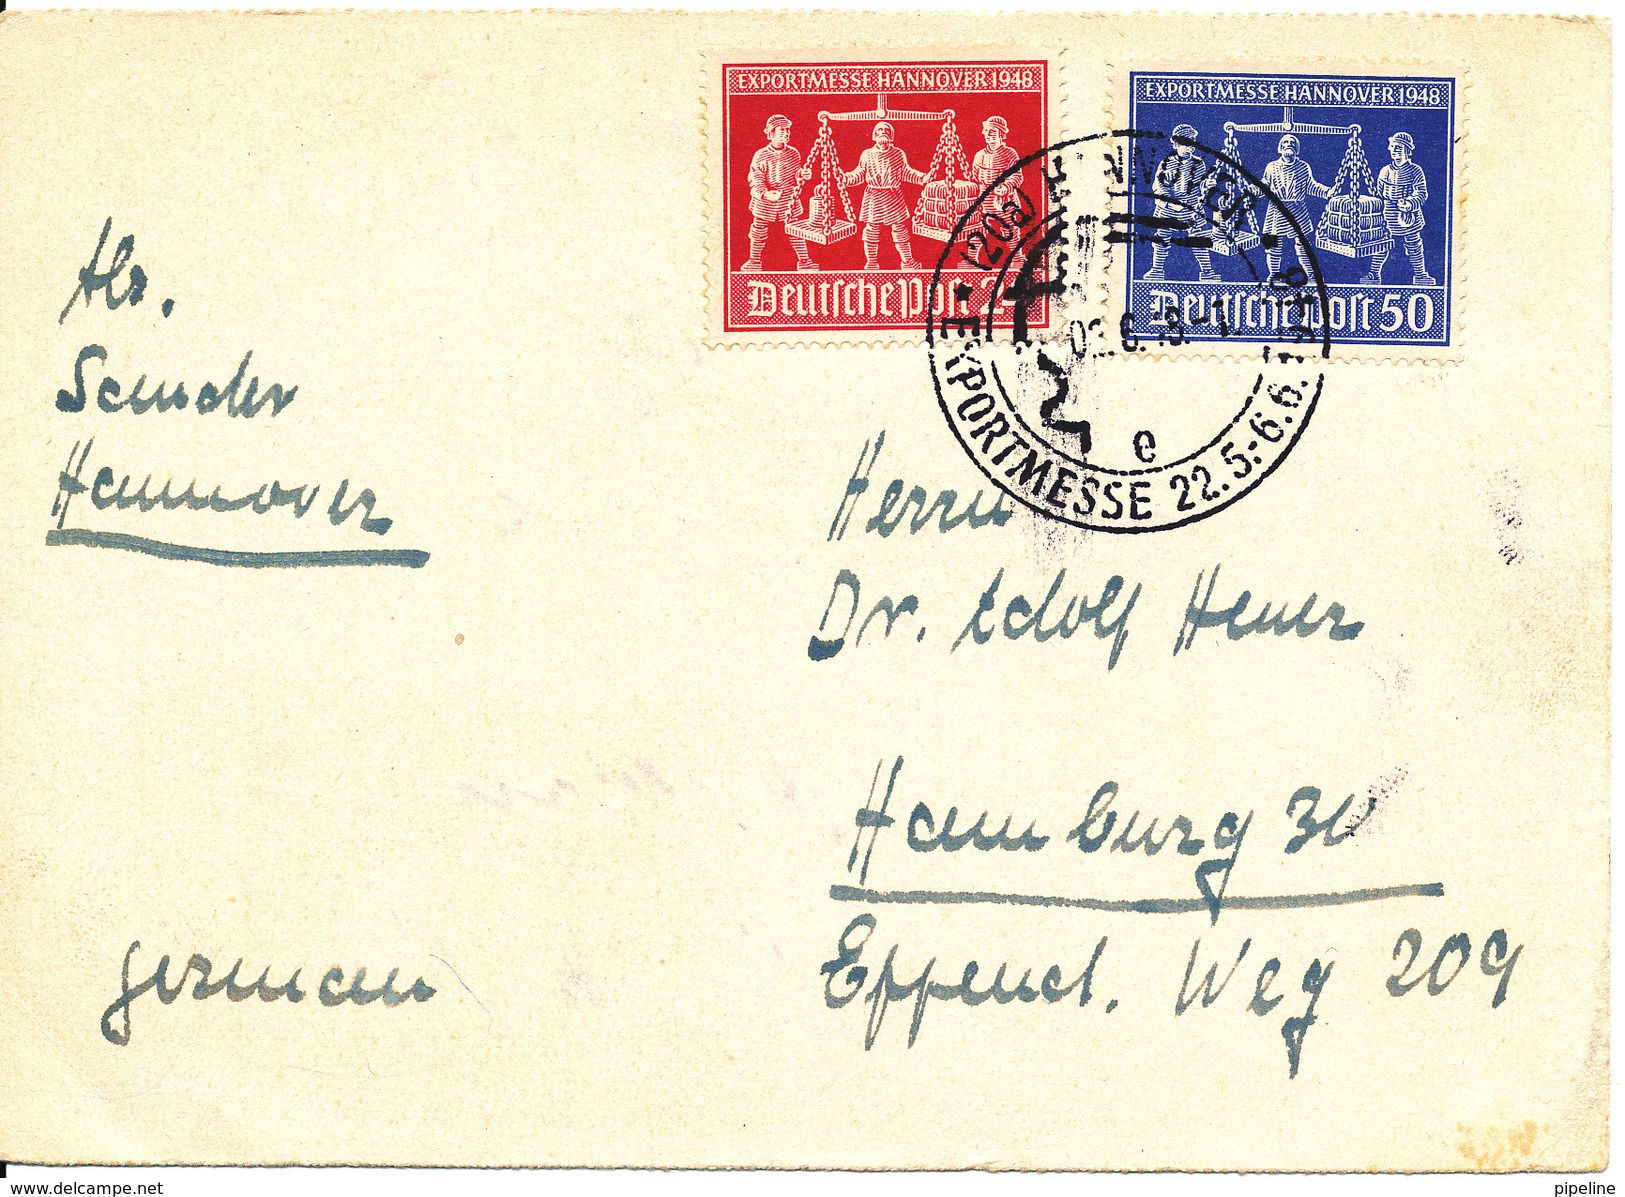 EXPORTMESSE HANNOVER 1948
Deutsche Post 2
EXPORTMESSE HANNOVER 1948
Deutsche Post 50
(20a) HANNOVER
EXPORTMESSE 22.5.-6.6.1948
e
Abs.
Sander
Hannover
Herrn
Dr. Adolf Heuer
Hamburg 30
Eppend. Weg 209
german
www.delcampe.net
pipeline